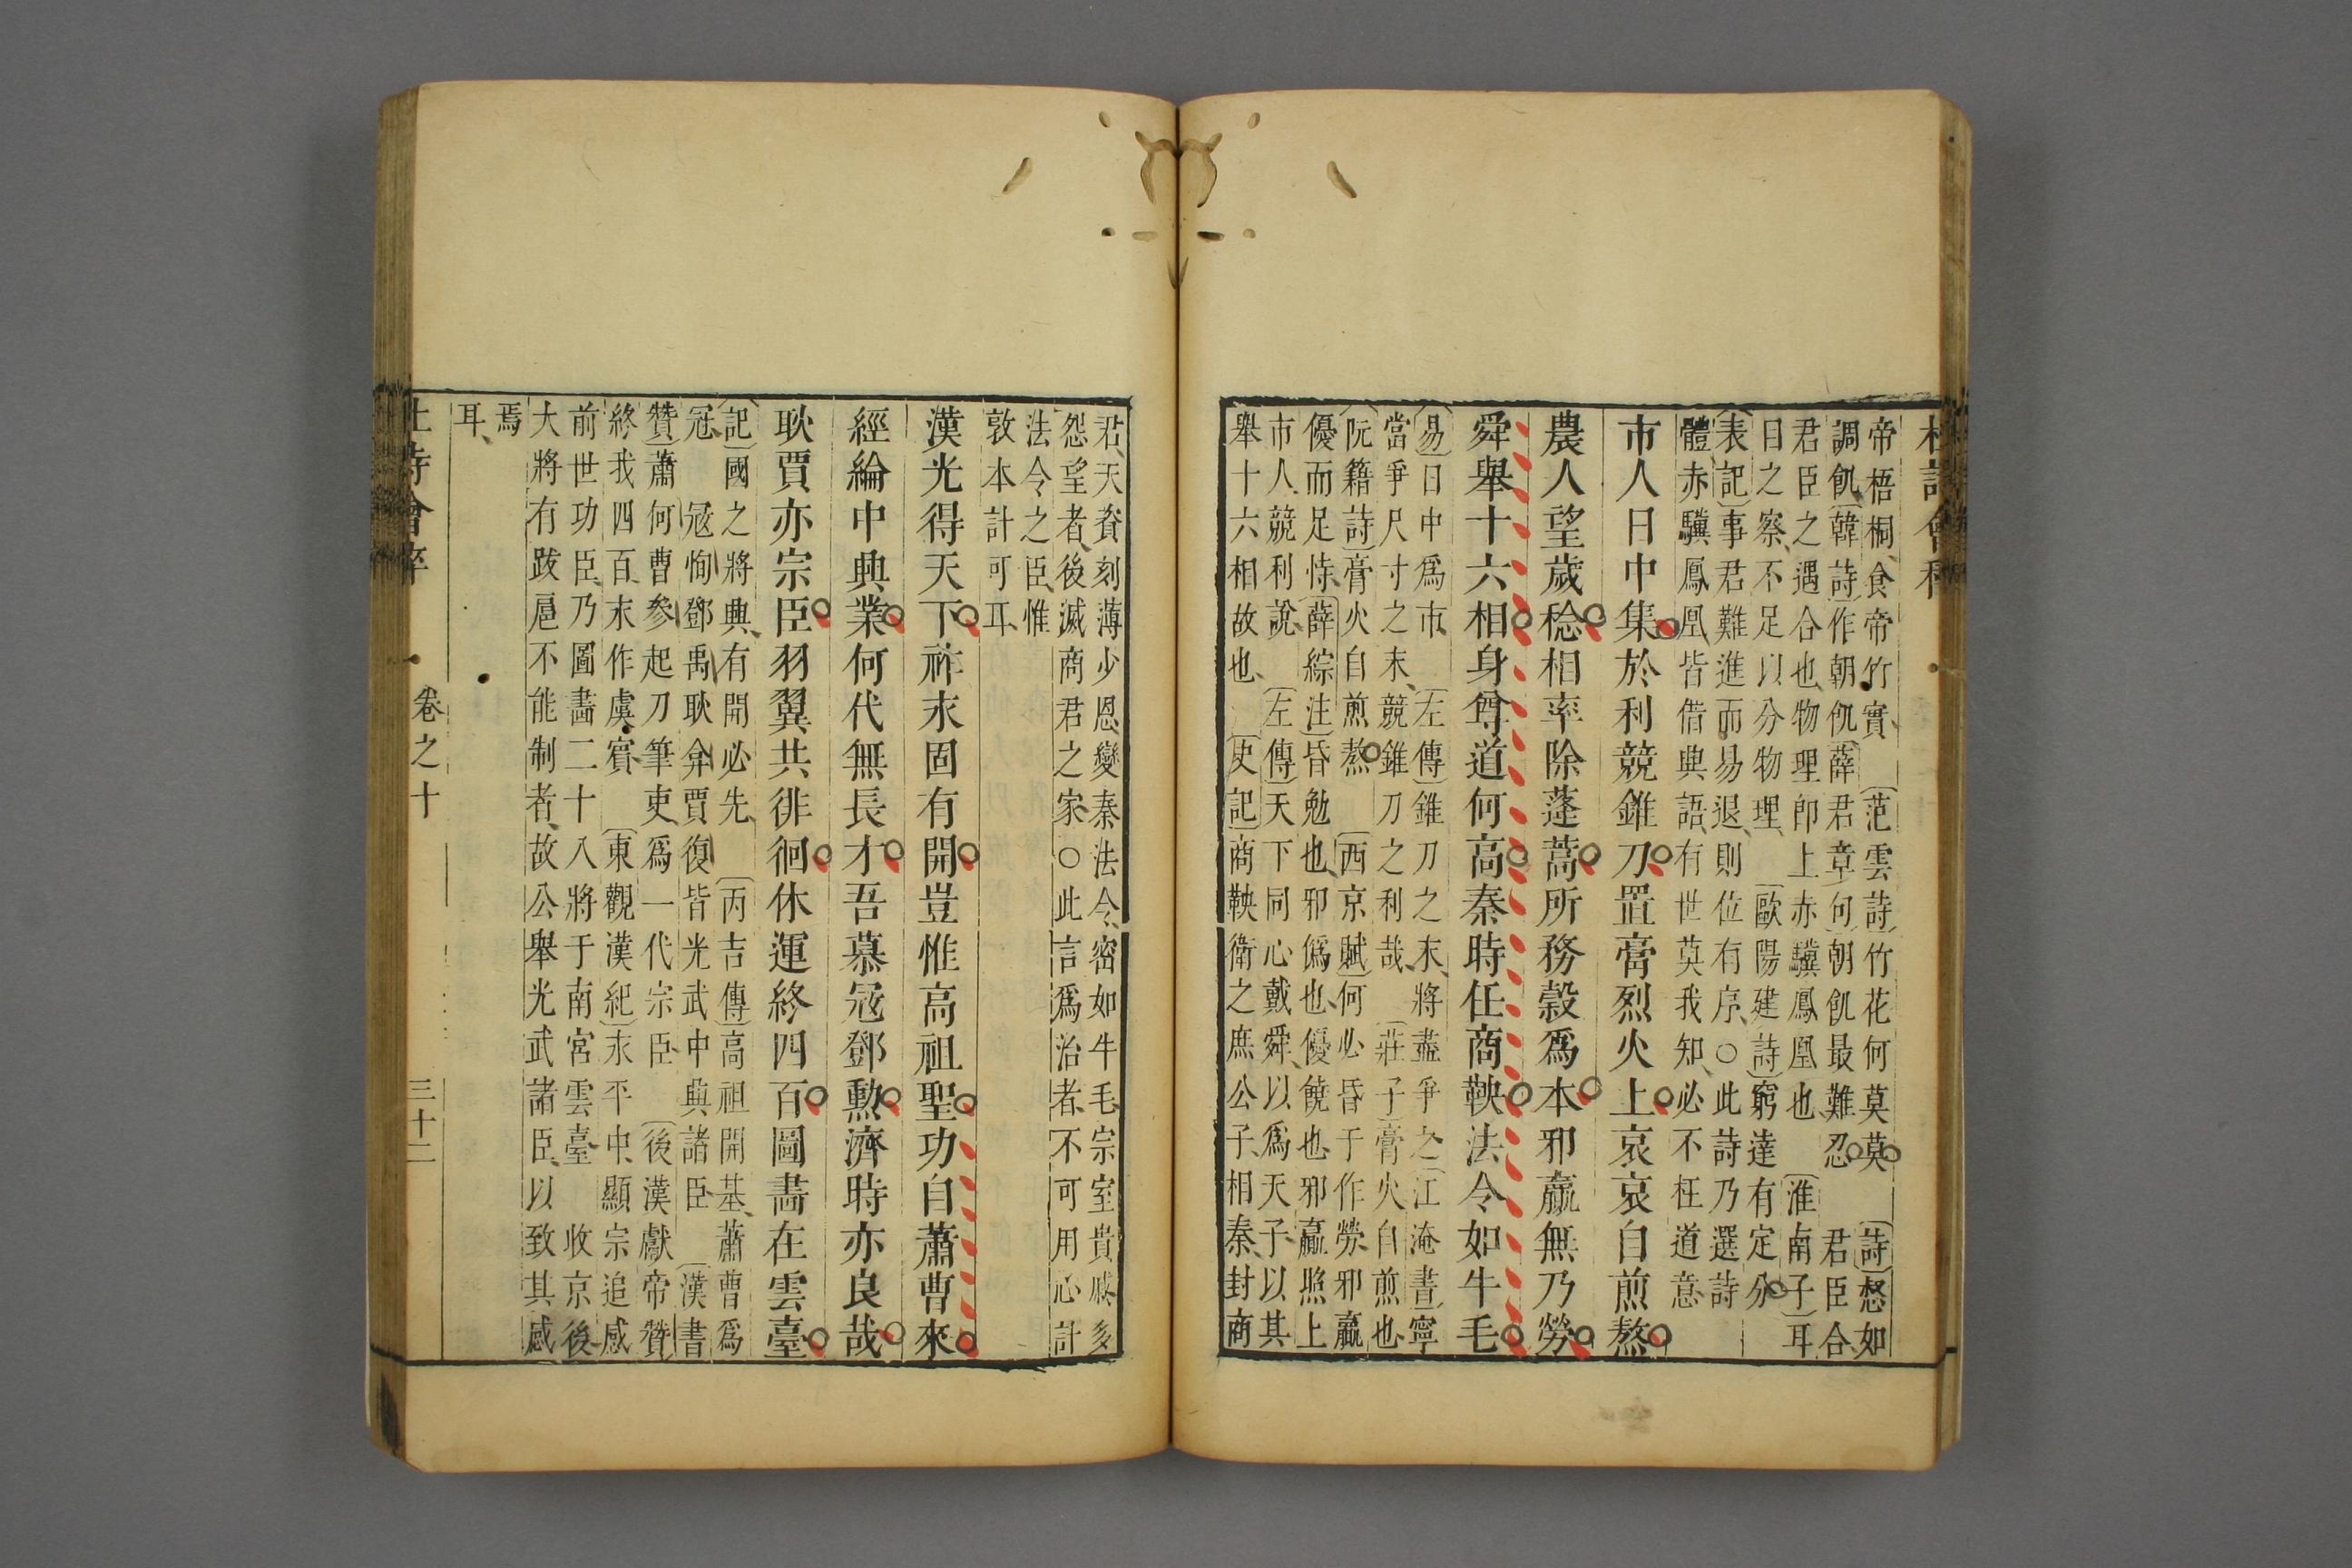 杜詩會稡
帝梧桐食帝竹實〔范雲詩〕竹花何莫莫〔詩〕惄如
調飢〔韓詩〕作朝飢〔薛君章句〕朝飢最難忍　君臣合
君臣之遇合也物理卽上赤驥鳳凰也〔淮南子〕耳
目之察不足以分物理〔歐陽建詩〕窮達有定分
〔表記〕事君難進而易退則位有序○此詩乃選詩
體赤驥鳳凰皆借興語有世莫我知必不枉道意
市人日中集於利競錐刀置膏烈火上哀哀自煎熬
農人望歲稔相率除蓬蒿所務穀爲本邪羸無乃勞
舜舉十六相身尊道何高秦時任商鞅法令如牛毛
〔易〕日中爲市〔左傳〕錐刀之末將盡爭之〔江淹書〕寧
當爭尺寸之末競錐刀之利哉〔莊子〕膏火自煎也
〔阮籍詩〕膏火自煎熬〔西京賦〕何必昏于作勞邪羸
優而足恃〔薛綜注〕昏勉也邪僞也優饒也邪羸照上
市人競利說〔左傳〕天下同心戴舜以爲天子以其
舉十六相故也〔史記〕商鞅衛之庶公子相秦封商
君天資刻薄少恩變秦法令密如牛毛宗室貴戚多
怨望者後滅商君之家○此言爲治者不可用心計
法令之臣惟
敦本計可耳
漢光得天下祚永固有開豈惟高祖聖功自蕭曹來
經綸中興業何代無長才吾慕冦鄧勲濟時亦良哉
耿賈亦宗臣羽翼共徘徊休運終四百圖畵在雲臺
〔記〕國之將興有開必先〔丙吉傳〕高祖開基蕭曹爲
冠　冦恂鄧禹耿弇賈復皆光武中興諸臣〔漢書
贊〕蕭何曹參起刀筆吏爲一代宗臣〔後漢獻帝贊〕
終我四百永作虞賓〔東觀漢紀〕永平中顯宗追感
前世功臣乃圖畵二十八將于南宮雲臺　收京後
大將有跋扈不能制者故公舉光武諸臣以致其感
焉
耳
杜詩會稡
卷之十
三十二